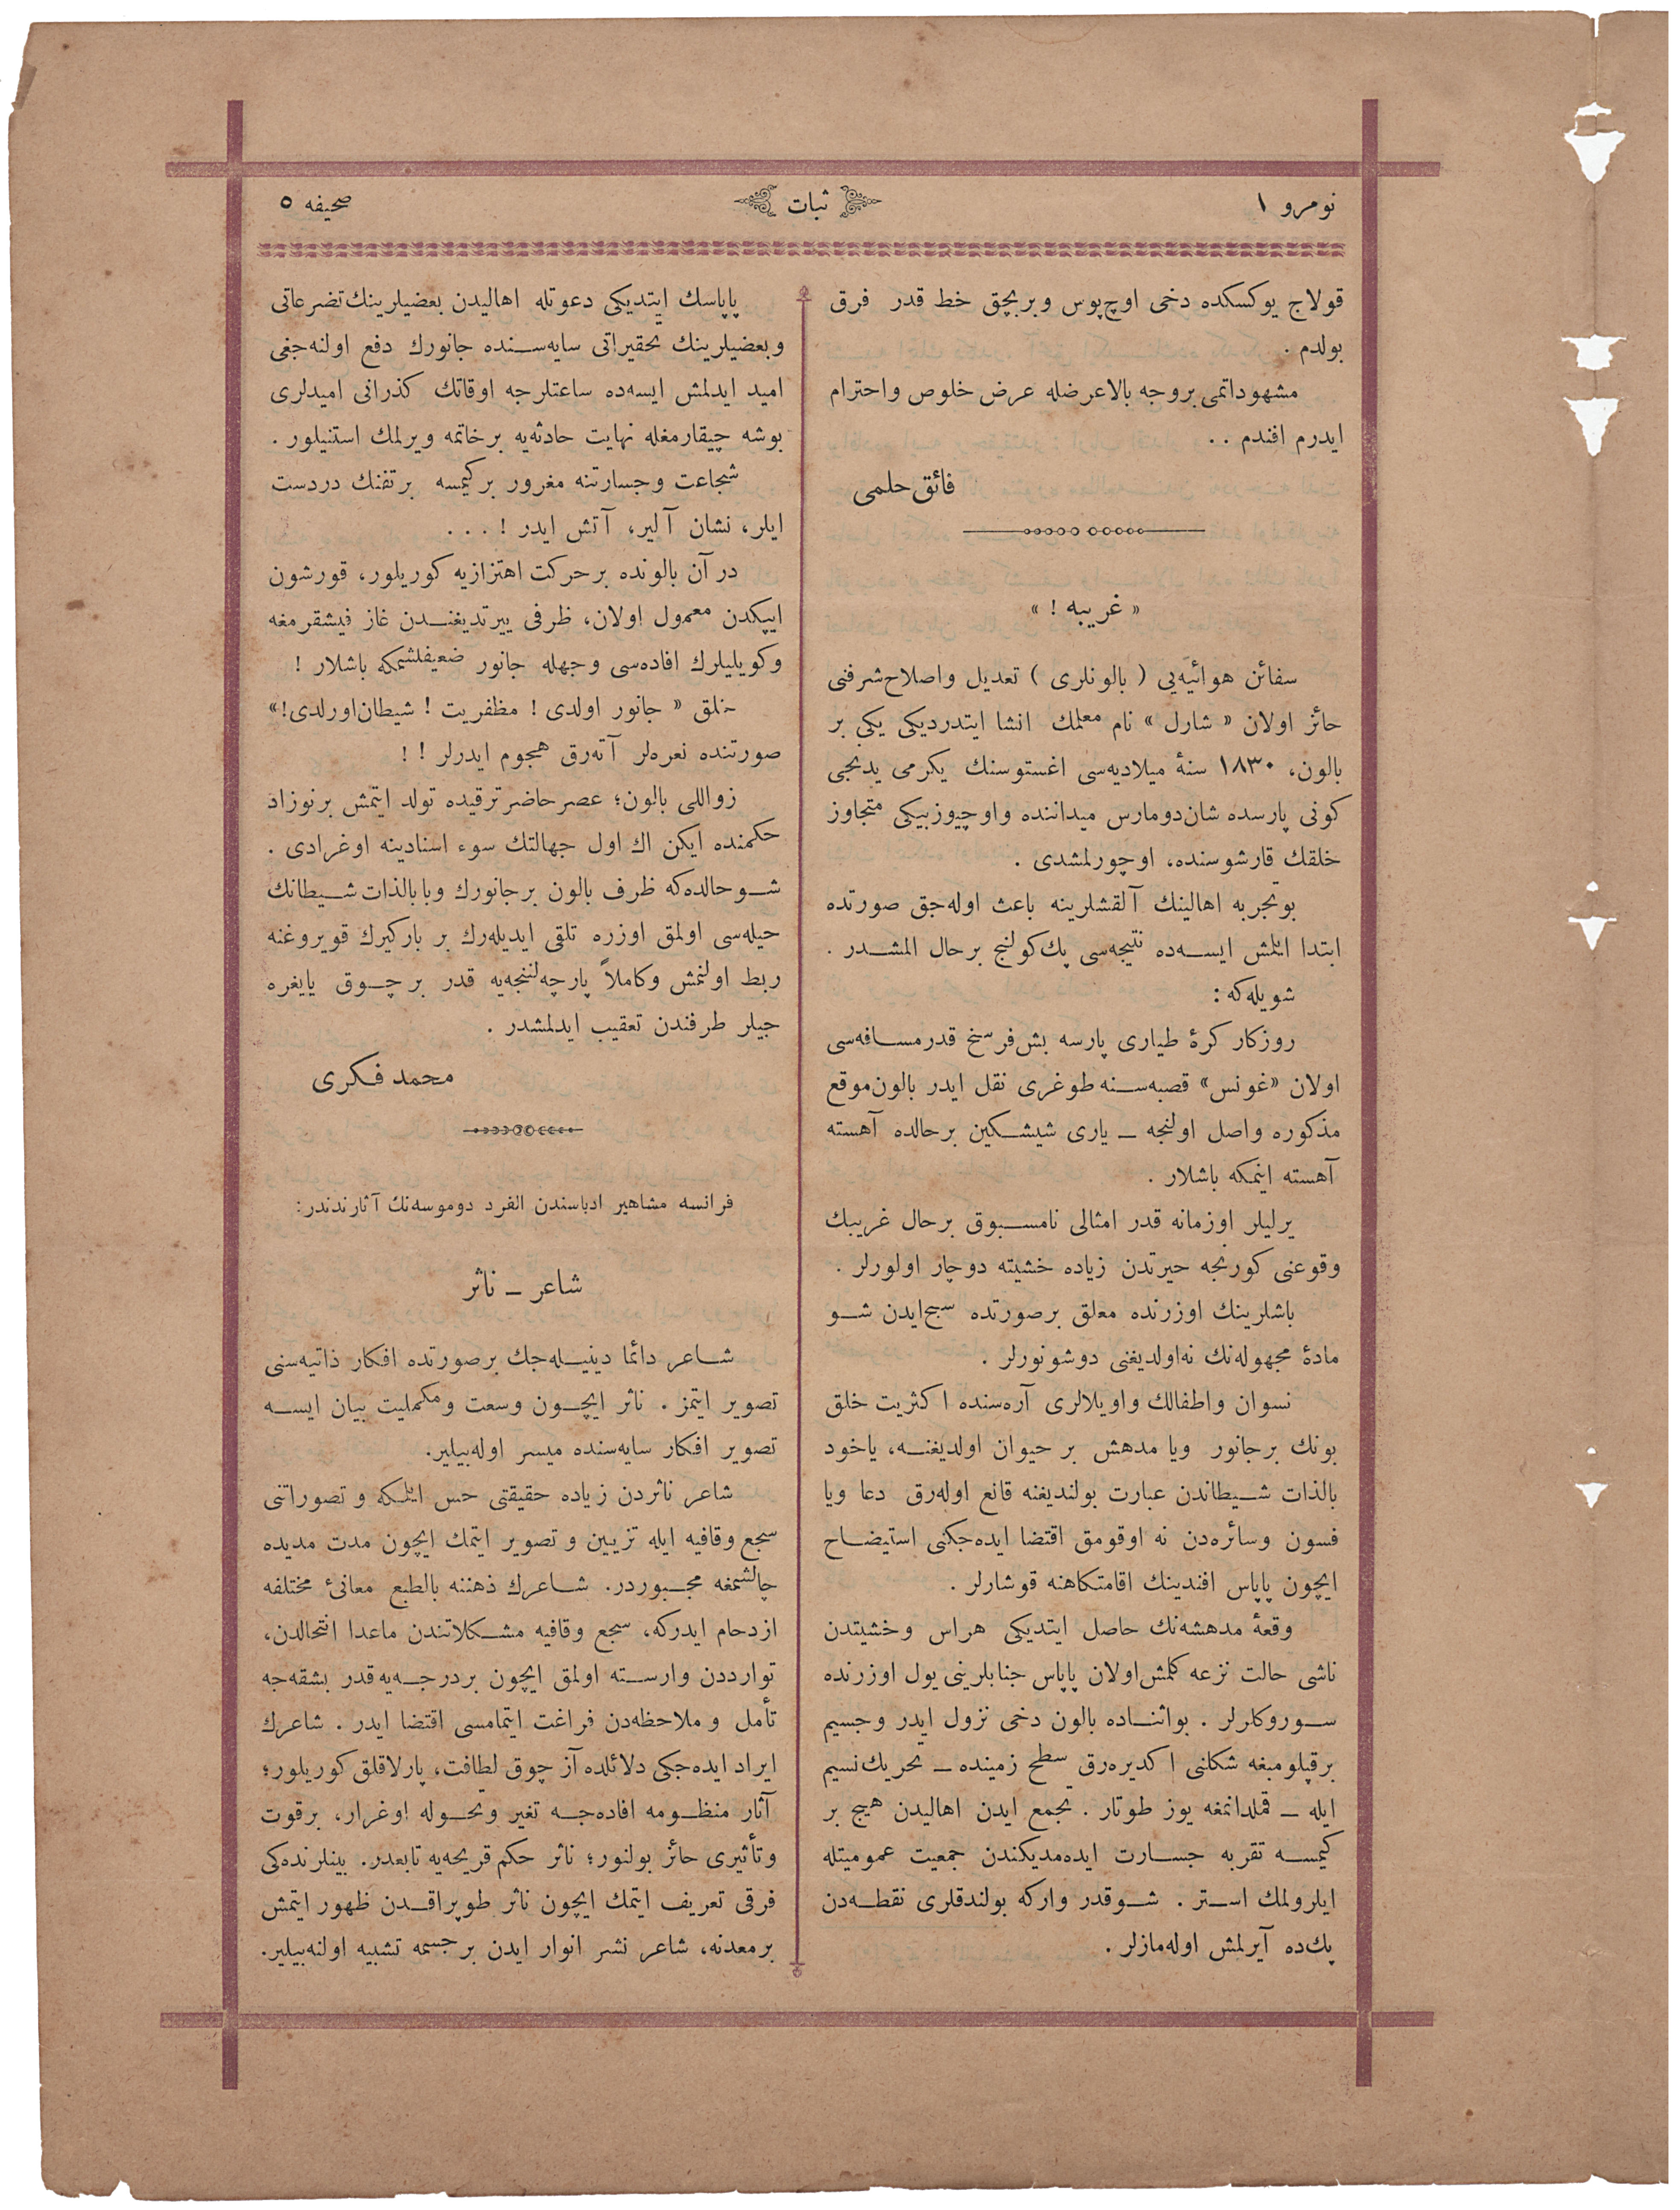 نومرو ١
ثبات
صحيفه ٥
قولاج يوكسكده دخى اوچ پوس وبربچق خط قدر فرق
بولدم .
مشهوداتمى بروجه بالاعرضله عرض خلوص واحترام
ايدرم افندم . .
فائق حلمى
« غريبه ! »
سفائن هوائيه‌يى ( بالونلرى ) تعديل واصلاح شرفنى
حائز اولان « شارل » نام معلمك انشا ايتدرديكى يكى بر
بالون، ١٨٣٠ سنهٔ ميلاديه‌سى اغستوسنك يكرمى يدنجى
كونى پارسده شان‌دومارس ميداننده واوچيوزبيكى متجاوز
خلقك قارشوسنده، اوچورلمشدى .
بوتجربه اهالينك آلقشلرينه باعث اوله‌جق صورتده
ابتدا ايتلمش ايسه‌ده نتيجه‌سى پك كولنج برحال المشدر .
شويله‌كه :
روزكار كرهٔ طيارى پارسه بش فرسخ قدر مسافه‌سى
اولان «غونس» قصبه‌سنه طوغرى نقل ايدر بالون موقع
مذكوره واصل اولنجه ــ يارى شيشكين برحالده آهسته
آهسته اينمكه باشلار .
يرليلر اوزمانه قدر امثالى نامسبوق برحال غريبك
وقوعنى كورنجه حيرتدن زياده خشيته دوچار اولورلر .
باشلرينك اوزرنده معلق برصورتده سبح ايدن شو
مادهٔ مجهوله‌نك نه‌اولديغنى دوشونورلر .
نسوان واطفالك واويلالرى آره‌سنده اكثريت خلق
بونك برجانور ويا مدهش بر حيوان اولديغنه، ياخود
بالذات شيطاندن عبارت بولنديغنه قانع اوله‌رق دعا ويا
فسون وسائره‌دن نه اوقومق اقتضا ايده‌جكنى استيضاح
ايچون پاپاس افندينك اقامتكاهنه قوشارلر .
وقعهٔ مدهشه‌نك حاصل ايتديكى هراس وخشيتدن
ناشى حالت نزعه كلمش اولان پاپاس جنابلرينى يول اوزرنده
سوروكلرلر . بواثناده بالون دخى نزول ايدر وجسيم
برقپلومبغه شكلنى اكديره‌رق سطح زمينده ــ تحريك نسيم
ايله ــ قملدانمغه يوز طوتار . تجمع ايدن اهاليدن هيچ بر
كيمسه تقربه جسارت ايده‌مديكندن جمعيت عموميتله
ايلرولمك استر . شوقدر واركه بولندقلرى نقطه‌دن
پك‌ده آيرلمش اوله‌مازلر .
پاپاسك ايتديكى دعوتله اهاليدن بعضيلرينك تضرعاتى
وبعضيلرينك تحقيراتى سايه‌سنده جانورك دفع اولنه‌جغى
اميد ايدلمش ايسه‌ده ساعتلرجه اوقاتك كذرانى اميدلرى
بوشه چيقارمغله نهايت حادثه‌يه برخاتمه ويرلمك استنيلور .
شجاعت وجسارتنه مغرور بركيمسه برتفنك دردست
ايلر، نشان آلير، آتش ايدر ! . . .
درآن بالونده برحركت اهتزازيه كوريلور، قورشون
ايپكدن معمول اولان، ظرفى ييرتديغندن غاز فيشقرمغه
وكويليلرك افاده‌سى وجهله جانور ضعيفلشمكه باشلار !
خلق « جانور اولدى ! مظفريت ! شيطان اورلدى !»
صورتنده نعره‌لر آته‌رق هجوم ايدرلر ! !
زواللى بالون؛ عصر حاضر ترقيده تولد ايتمش برنوزاد
حكمنده ايكن اك اول جهالتك سوء اسنادينه اوغرادى .
شوحالده‌كه ظرف بالون برجانورك ويابالذات شيطانك
حيله‌سى اولمق اوزره تلقى ايديله‌رك بر باركيرك قويروغنه
ربط اولنمش وكاملاً پارچه‌لنجه‌يه قدر برچوق يايغره
جيلر طرفندن تعقيب ايدلمشدر .
محمد فكرى
فرانسه مشاهير ادباسندن الفرد دوموسه‌نك آثارندندر:
شاعر ــ ناثر
شاعر دائما دينيله‌جك برصورتده افكار ذاتيه‌سنى
تصوير ايتمز . ناثر ايچون وسعت ومكمليت بيان ايسه
تصوير افكار سايه‌سنده ميسر اوله‌بيلير.
شاعر ناثردن زياده حقيقتى حس ايتمكه و تصوراتنى
سجع وقافيه ايله تزيين و تصوير ايتمك ايچون مدت مديده
چالشمغه مجبوردر. شاعرك ذهننه بالطبع معانئ مختلفه
ازدحام ايدركه، سجع وقافيه مشكلاتندن ماعدا انتحالدن،
تواردن وارسته اولمق ايچون بردرجه‌يه‌قدر بشقه‌جه
تأمل و ملاحظه‌دن فراغت ايتمامسى اقتضا ايدر . شاعرك
ايراد ايده‌جكى دلائلده آز چوق لطافت، پارلاقلق كوريلور؛
آثار منظومه افاده‌جه تغير وتحوله اوغرار، برقوت
وتأثيرى حائز بولنور؛ ناثر حكم قريحه‌يه تابعدر. بينلرنده‌كى
فرقى تعريف ايتمك ايچون ناثر طوپراقدن ظهور ايتمش
برمعدنه، شاعر نشر انوار ايدن برجسمه تشبيه اولنه‌بيلير.